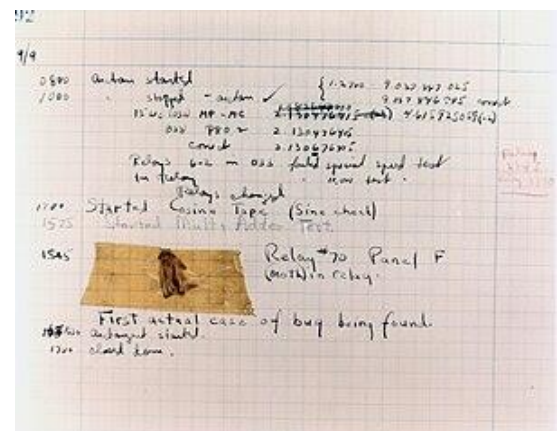 92
9/9
0800 antan started
1000 " stopped - antan ✓ { 1.2700 9.037 847 025
9.037 846 995 correct
13" uc (032) MP - MC 2.130476415 (-3) 4.615925059 (-2)
033 PRO 2 2.130476415
correct 2.130676415
Relays 6-2 in 033 failed special speed test
in relay " 11.00 test.
Relays changed
1100 Started Cosine Tape (Sine check)
1525 Started Multi Adder Test.
1545 Relay #70 Panel F
(moth) in relay.
First actual case of bug being found.
antangent started.
1700 closed down.